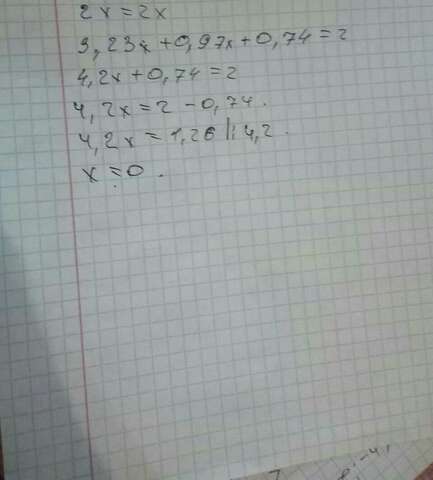 2x=2x
3,23x+0,97x+0,74=2
4,2x+0,74=2
4,2x=2-0,74.
4,2x=1,26 ||:4,2.
x=0.